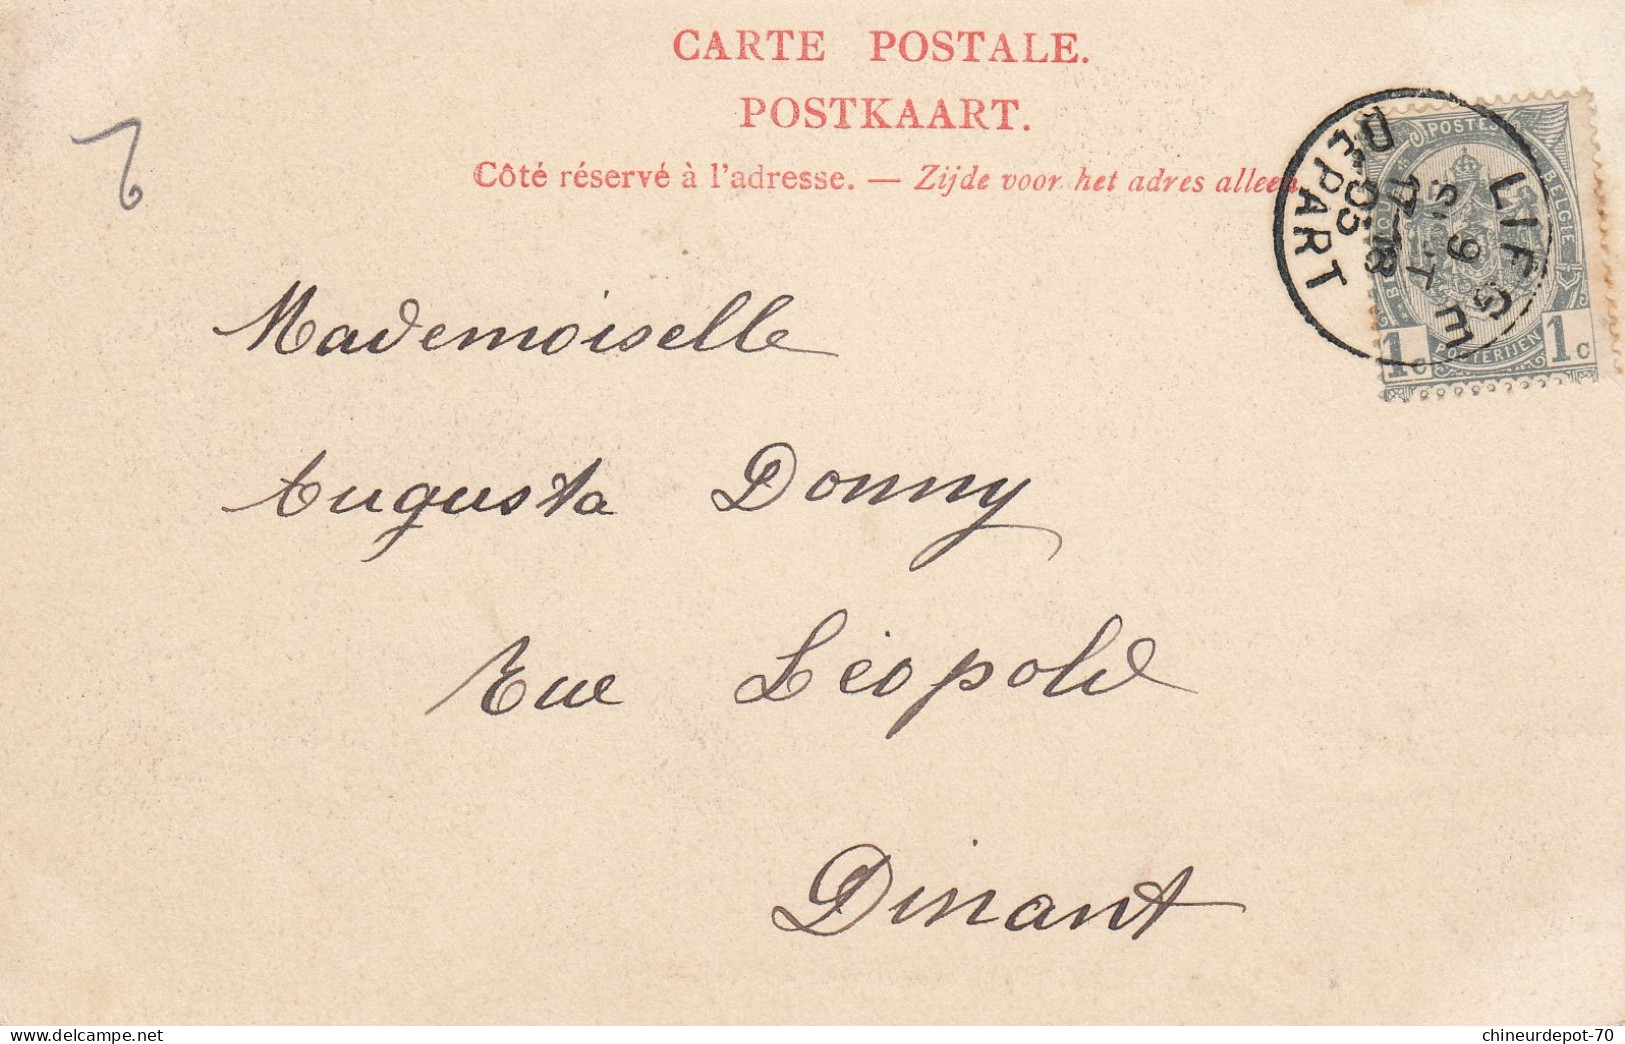 CARTE POSTALE.
POSTKAART.
Côté réservé à l'adresse. — Zijde voor het adres alleen.
LIEGE
DEPART
9
SEPT
17-18
05
POSTES
BELGIE
POSTERIJEN
1c 1c
Mademoiselle
Augusta Donny
Rue Léopold
Dinant
www.delcampe.net
chineurdepot-70